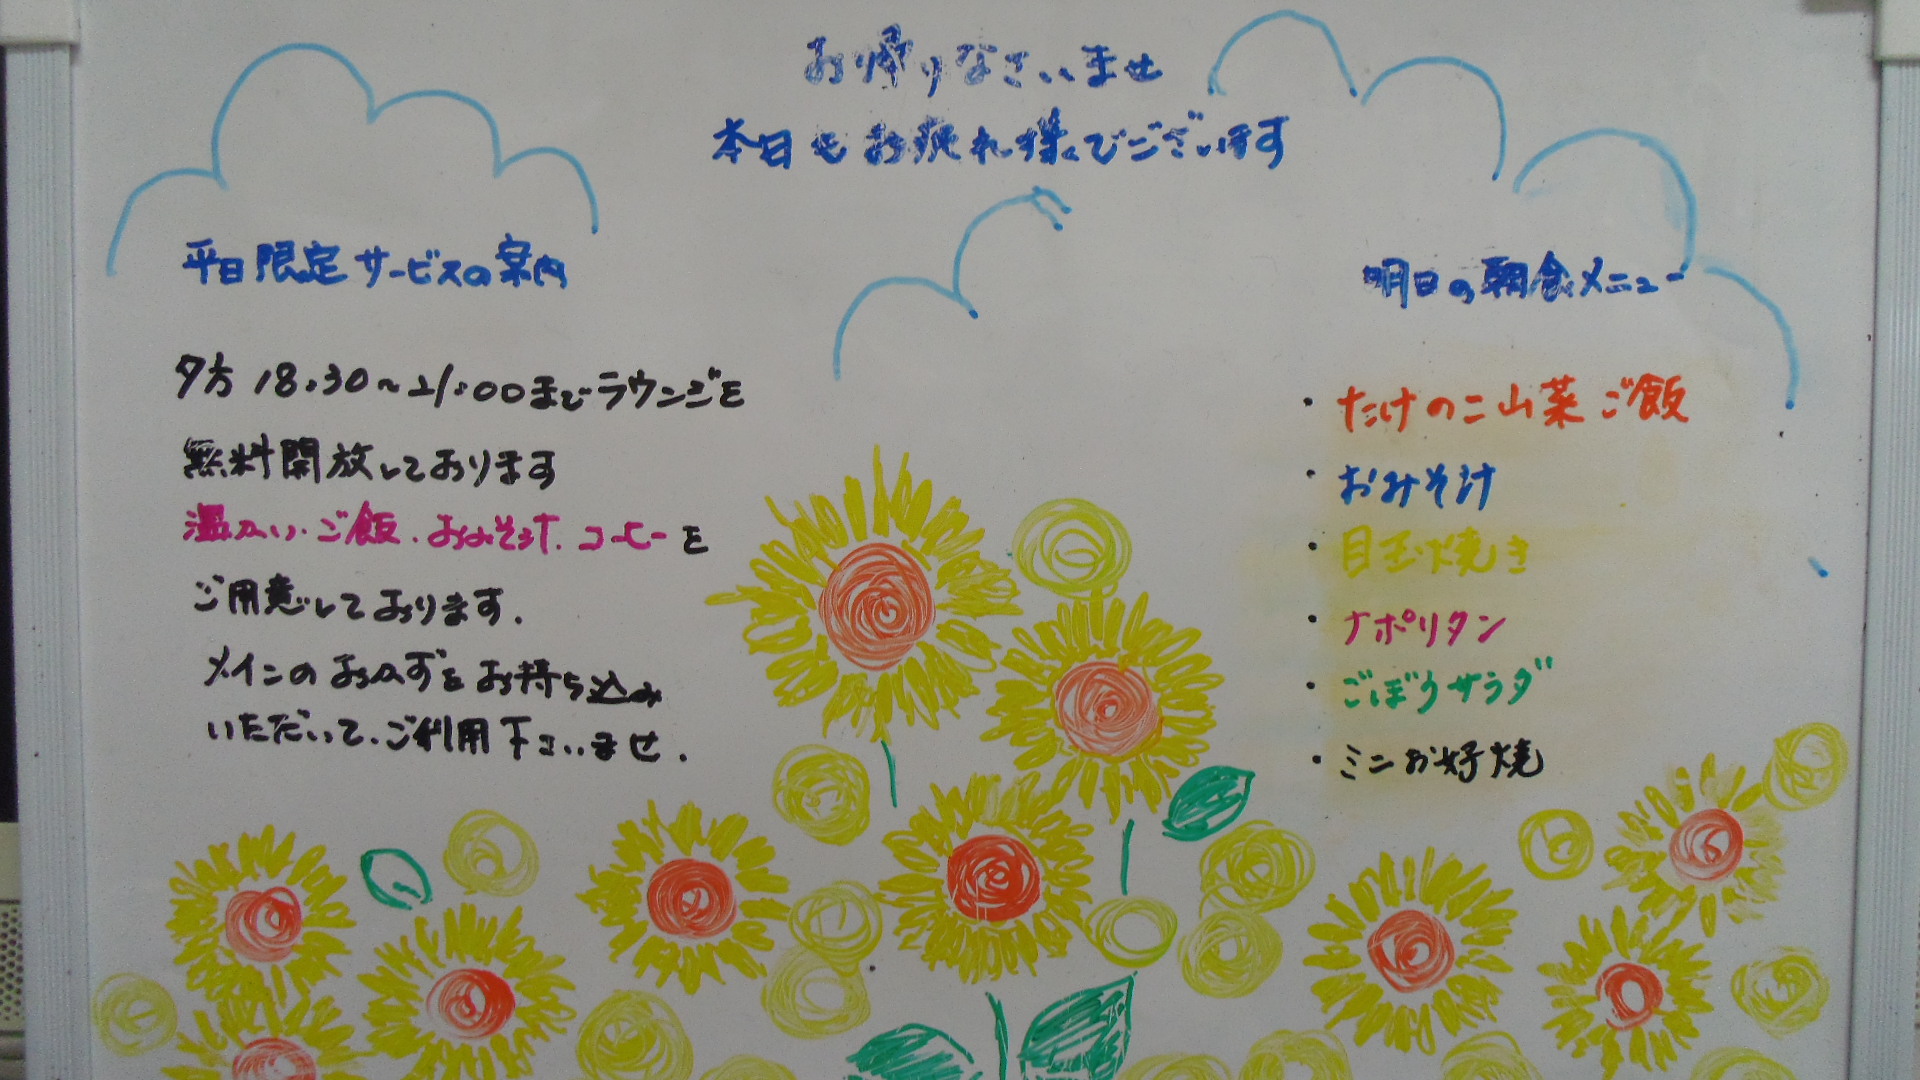 お帰りなさいませ
本日もお疲れ様でございます
平日限定サービスの案内
夕方 18:30〜21:00までラウンジを
無料開放しております
温かい・ご飯・おみそ汁・コーヒーを
ご用意しております.
メインのおかずをお持ち込み
いただいて、ご利用下さいませ.
明日の朝食メニュー
・たけのこ山菜ご飯
・おみそ汁
・目玉焼き
・ナポリタン
・ごぼうサラダ
・ミニお好焼